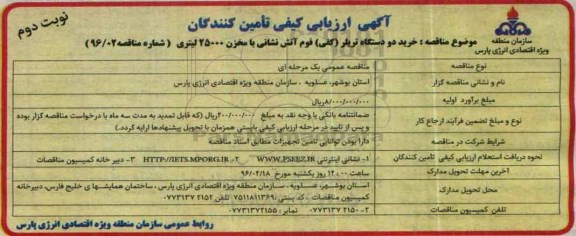 نوبت دوم
آگهی ارزیابی کیفی تأمین کنندگان
موضوع مناقصه : خرید دو دستگاه تریلر (کلی) فوم آتش نشانی با مخزن ۲۵۰۰۰ لیتری ( شماره مناقصه ۹۶/۰۲)
سازمان منطقه
ویژه اقتصادی انرژی پارس
نوع مناقصه
مناقصه عمومی یک مرحله ای
نام و نشانی مناقصه گزار
استان بوشهر، عسلویه ، سازمان منطقه ویژه اقتصادی انرژی پارس
مبلغ برآورد اولیه
۸/۰۰۰/۰۰۰/۰۰۰ریال
نوع و مبلغ تضمین فرآیند ارجاع کار
ضمانتنامه بانکی یا وجه نقد به مبلغ ریال (که قابل تمدید به مدت سه ماه با درخواست مناقصه گزار بوده
و پس از تایید در مرحله ارزیابی کیفی بایستی همزمان با تحویل پیشنهادها ارایه گردد.)
شرایط شرکت در مناقصه
دارا بودن توانایی تامین تجهیزات مطابق اسناد مناقصه
نحوه دریافت استعلام ارزیابی کیفی تامین کنندگان
۱- نشانی اینترنتی WWW.PSEEZ.IR ۲- HTTP://IETS.MPORG.IR ۳- دبیر خانه کمیسیون مناقصات
آخرین مهلت تحویل مدارک
ساعت ۱۲:۰۰ روز یکشنبه مورخ ۹۶/۰۲/۱۸
محل تحویل مدارک
استان بوشهر، عسلویه ، سازمان منطقه ویژه اقتصادی انرژی پارس ، ساختمان همایشهای خلیج فارس، دبیرخانه
کمیسیون مناقصات ، کد پستی ۷۵۱۱۸۱۱۳۶۹ تلفن ۰۷۷۳۱۳۷ ۲۱۵۲
تلفن کمیسیون مناقصات
۰۷۷۳۱۳۷ ۲۱۵۰-۲ نمابر : ۰۷۷۳۱۳۷۲۱۵۵
روابط عمومی سازمان منطقه ویژه اقتصادی انرژی پارس